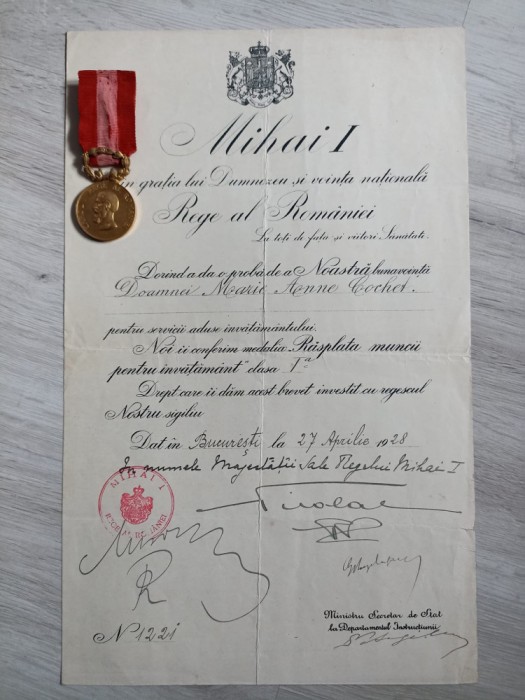 Mihai I
Prin grația lui Dumnezeu și voința națională
Rege al României
La toți de față și viitori Sănătate.
Dorind a da o probă de a Noastră bunavoință
Doamnei Marie Anne Cochet.
pentru servicii aduse invățământului.
Noi îi conferim medalia „Răsplata muncii
pentru invățământ" clasa Iª
Drept care îi dăm acest brevet investit cu regescul
Nostru sigiliu
Dat în București la 27 Aprilie 1928
În numele Majestății Sale Regelui Mihai I
MIHAI I
Nicolae
Ministru Secretar de Stat
la Departamentul Instrucțiunii
N 1221